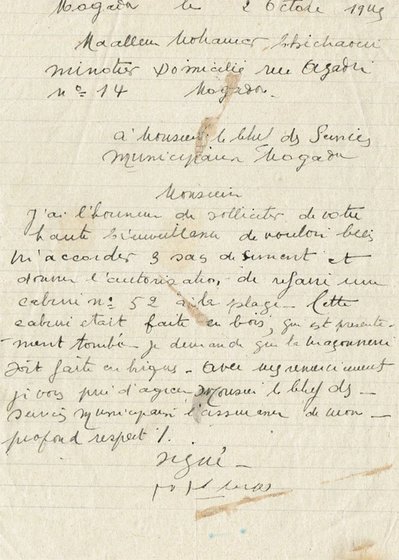 Mogador le 2 Octobre 19
Maallem Mohamed
minotier Domicilié rue Agadir
n° 14 Mogador.
à Monsieur le Chef ds Services
Municipaux Mogador
Monsieur
J'ai l'honneur de solliciter de votre
haute bienveillance de vouloir bien
m'accorder 3 sacs de siment et
donner l'autorisation de refaire une
cabine n° 52 à la plage. Cette
cabine etait faite en bois, qui est presente-
ment tombé. Je demande que la maçonnerie
soit faite en briques. Avec mes remerciement
je vous prie d'agréer Monsieur le Chef ds
services municipaux l'assurance de mon
profond respect /.
signé -